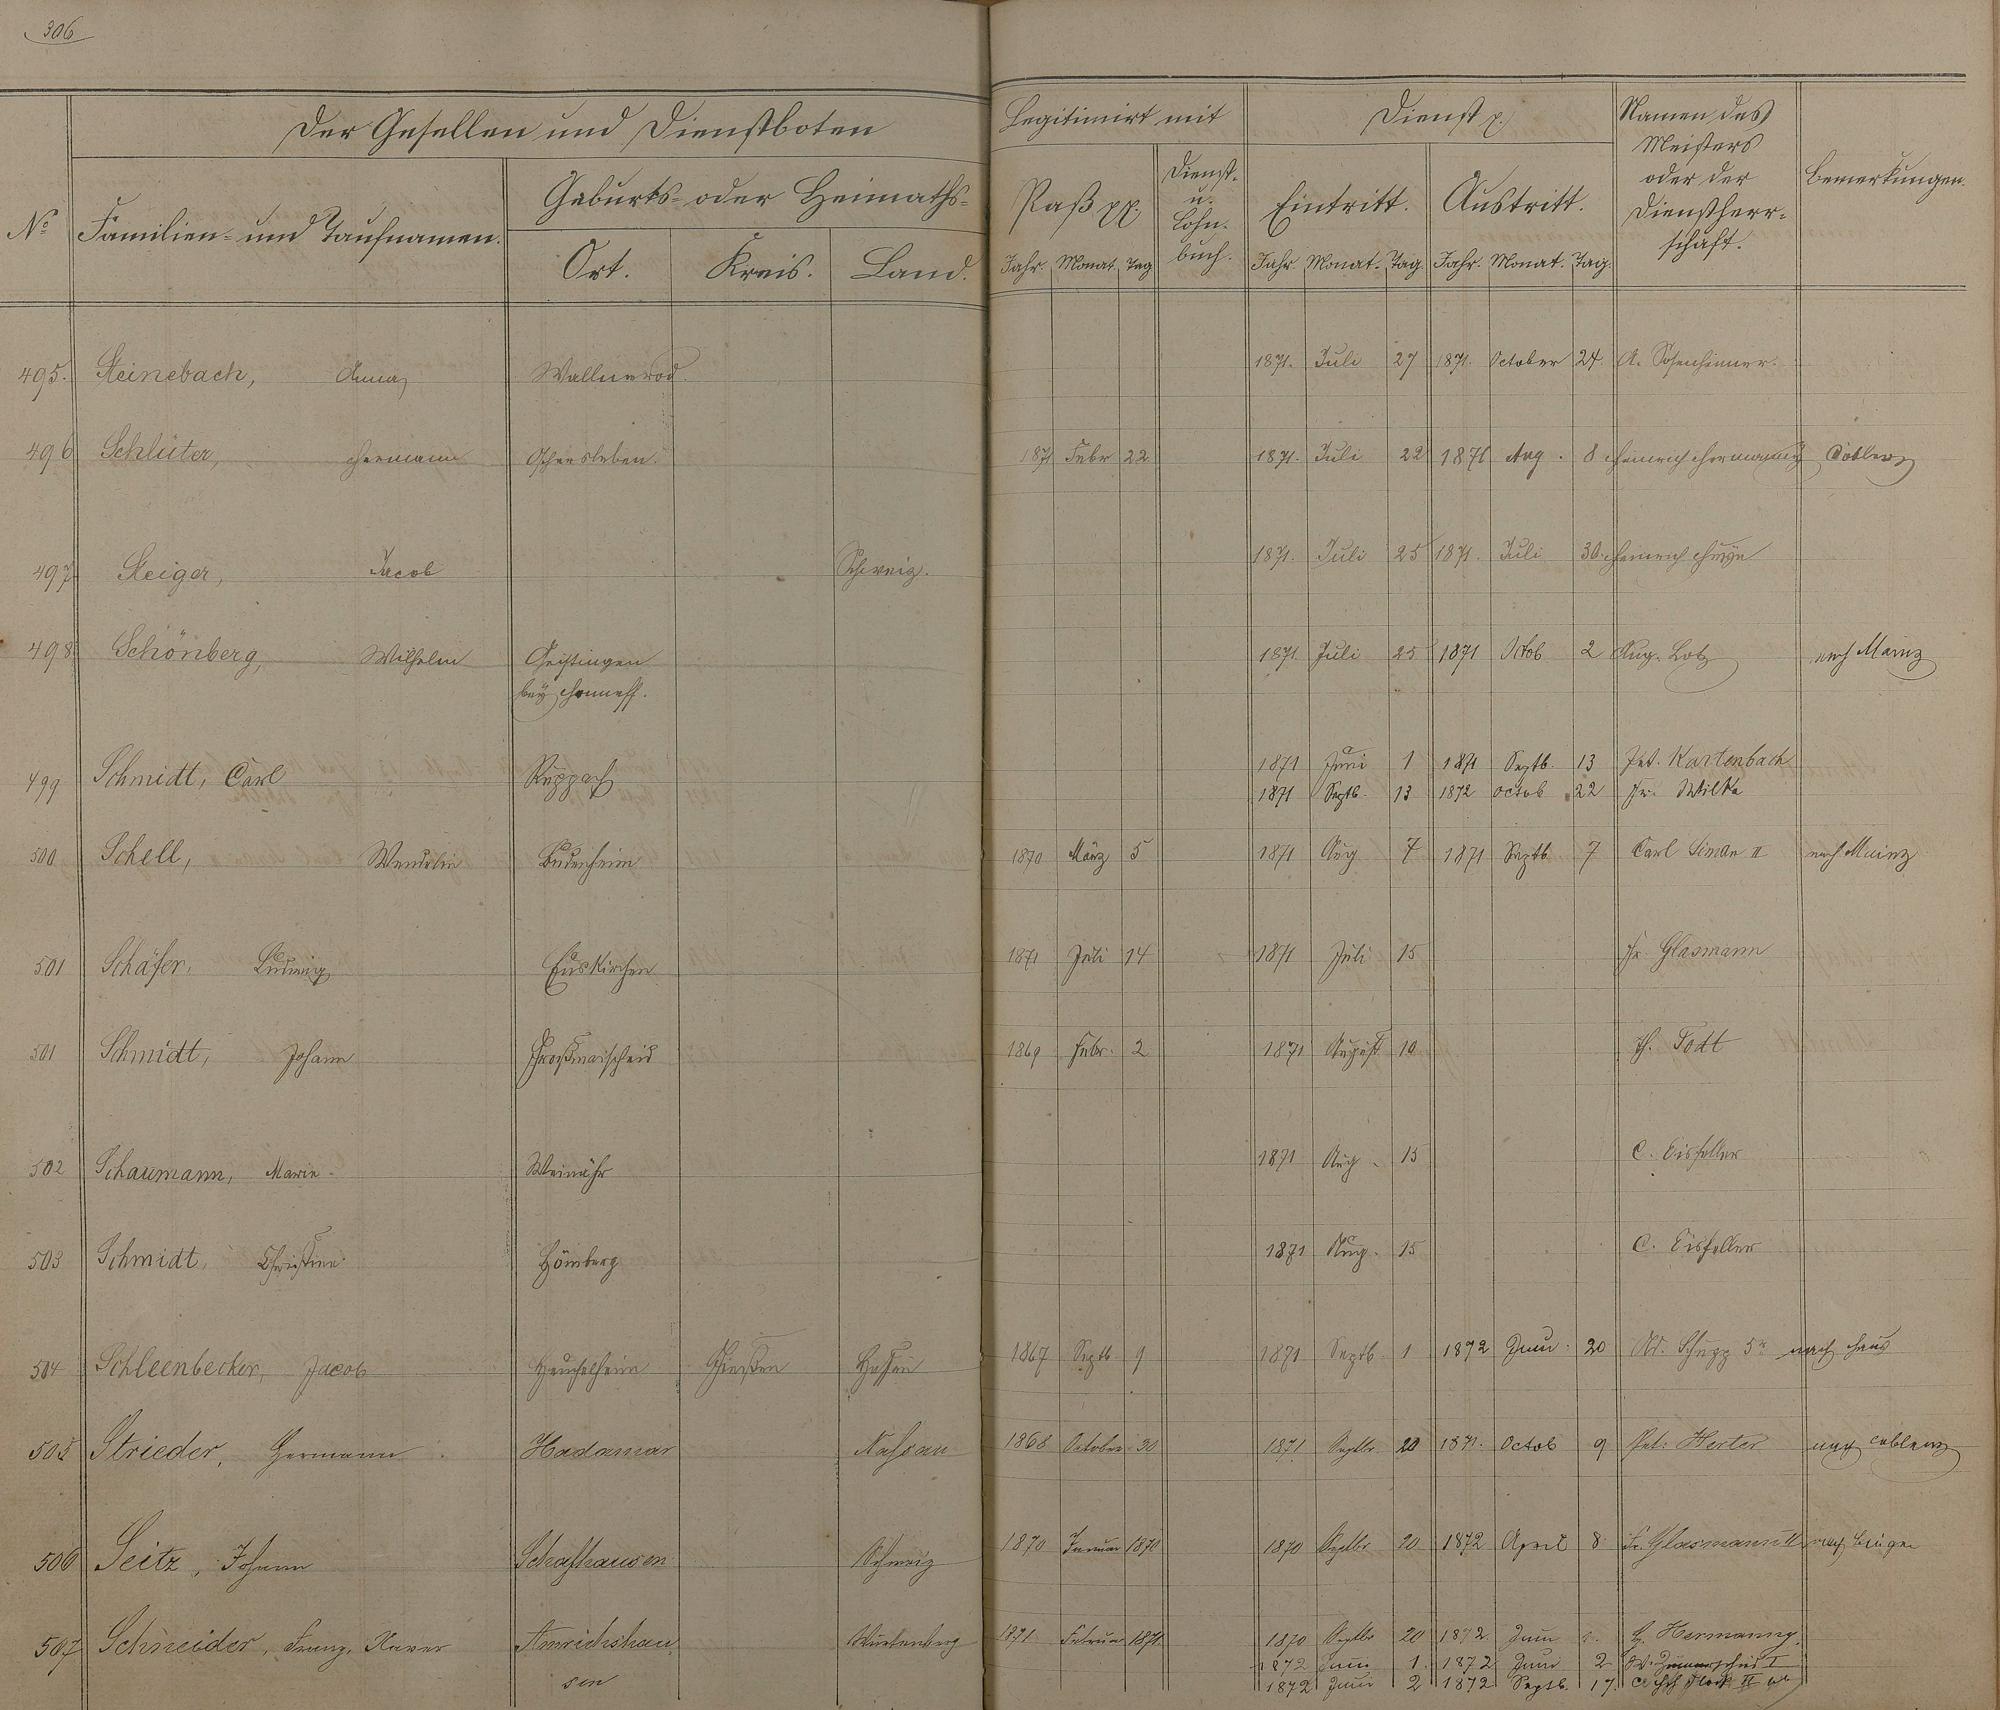 306
Der Gesellen und Dienstboten
Legitimirt mit
Dienst p.
Namen des
Meisters
oder der
Dienstherr-
schaft.
Bemerkungen.
No
Familien- und Taufnamen.
Geburts- oder Heimaths-
Ort. Kreis. Land.
Paß pp.
Dienst-
u.
Lohn-
buch.
Eintritt. Austritt.
Jahr. Monat Tag
Jahr. Monat. Tag. Jahr. Monat. Tag.
495. Steinebach, Anna Wallmerod. 1871. Juli 27 1871. October 24. A. Rosenheimer.
496 Schlüter, Hermann Oschersleben. 1871 Febr 22. 1871. Juli 22 1871 Aug. 8 Heinrich Hermanny Coblenz
497 Steiger, Jacob Schweiz. 1871. Juli 25 1871. Juli 30. Heinrich
498. Schönberg, Wilhelm Geistingen 1871. Juli 25 1871 Octob 2 Aug. Lotz nach Mainz
bey Henneff.
499 Schmidt, Carl Ruppach 1871 Juni 1 1871 Septb. 13 Pet. Kartenbach
1871 Septb. 13 1872 Octob 22 Fr. Wilke
500 Schell, Wendelin Budenheim 1870 März 5 1871 Aug 7 1871 Septb 7 Carl Simon II nach Mainz
501 Schäfer, Ludwig Euskirchen 1871 Juli 14 1871 Juli 15 Fr. Glasmann
501 Schmidt, Johann Großmaischeid 1869 Febr. 2 1871 August 10 Todt
502 Schaumann, Marie. Weinähr 1871 Aug. 15 C. Eisfeller
503 Schmidt, Christine. Hömberg 1871 Aug. 15 C. Eisfeller
504 Schleenbecker, Jacob Heuchelheim Gießen Hessen 1867 Septb. 9 1871 Septb. 1 1872 Juni. 20 Ad. Schupp nach Haus
505 Strieder, Hermann Hadamar Nassau 1868 October 30 1871 Septbr. 20 1871. Octob 9 Pet. Herter nach Coblenz
506 Seitz, Johann Schafhausen Schweiz 1870 Januar 1870 1870 Septbr 20 1872 April 8. Fr. Glasmann II nach Bingen
507 Schneider, Franz, Xaver Amrichshau- Würtenberg 1871 Februar 1871. 1870 Septbr 20 1872. Juni H. Hermanny.
sen 1872 Juni 1. 1872 Juni 2 W. Zimmerschied I
1872 Juni 2 1872 Septb. 17.